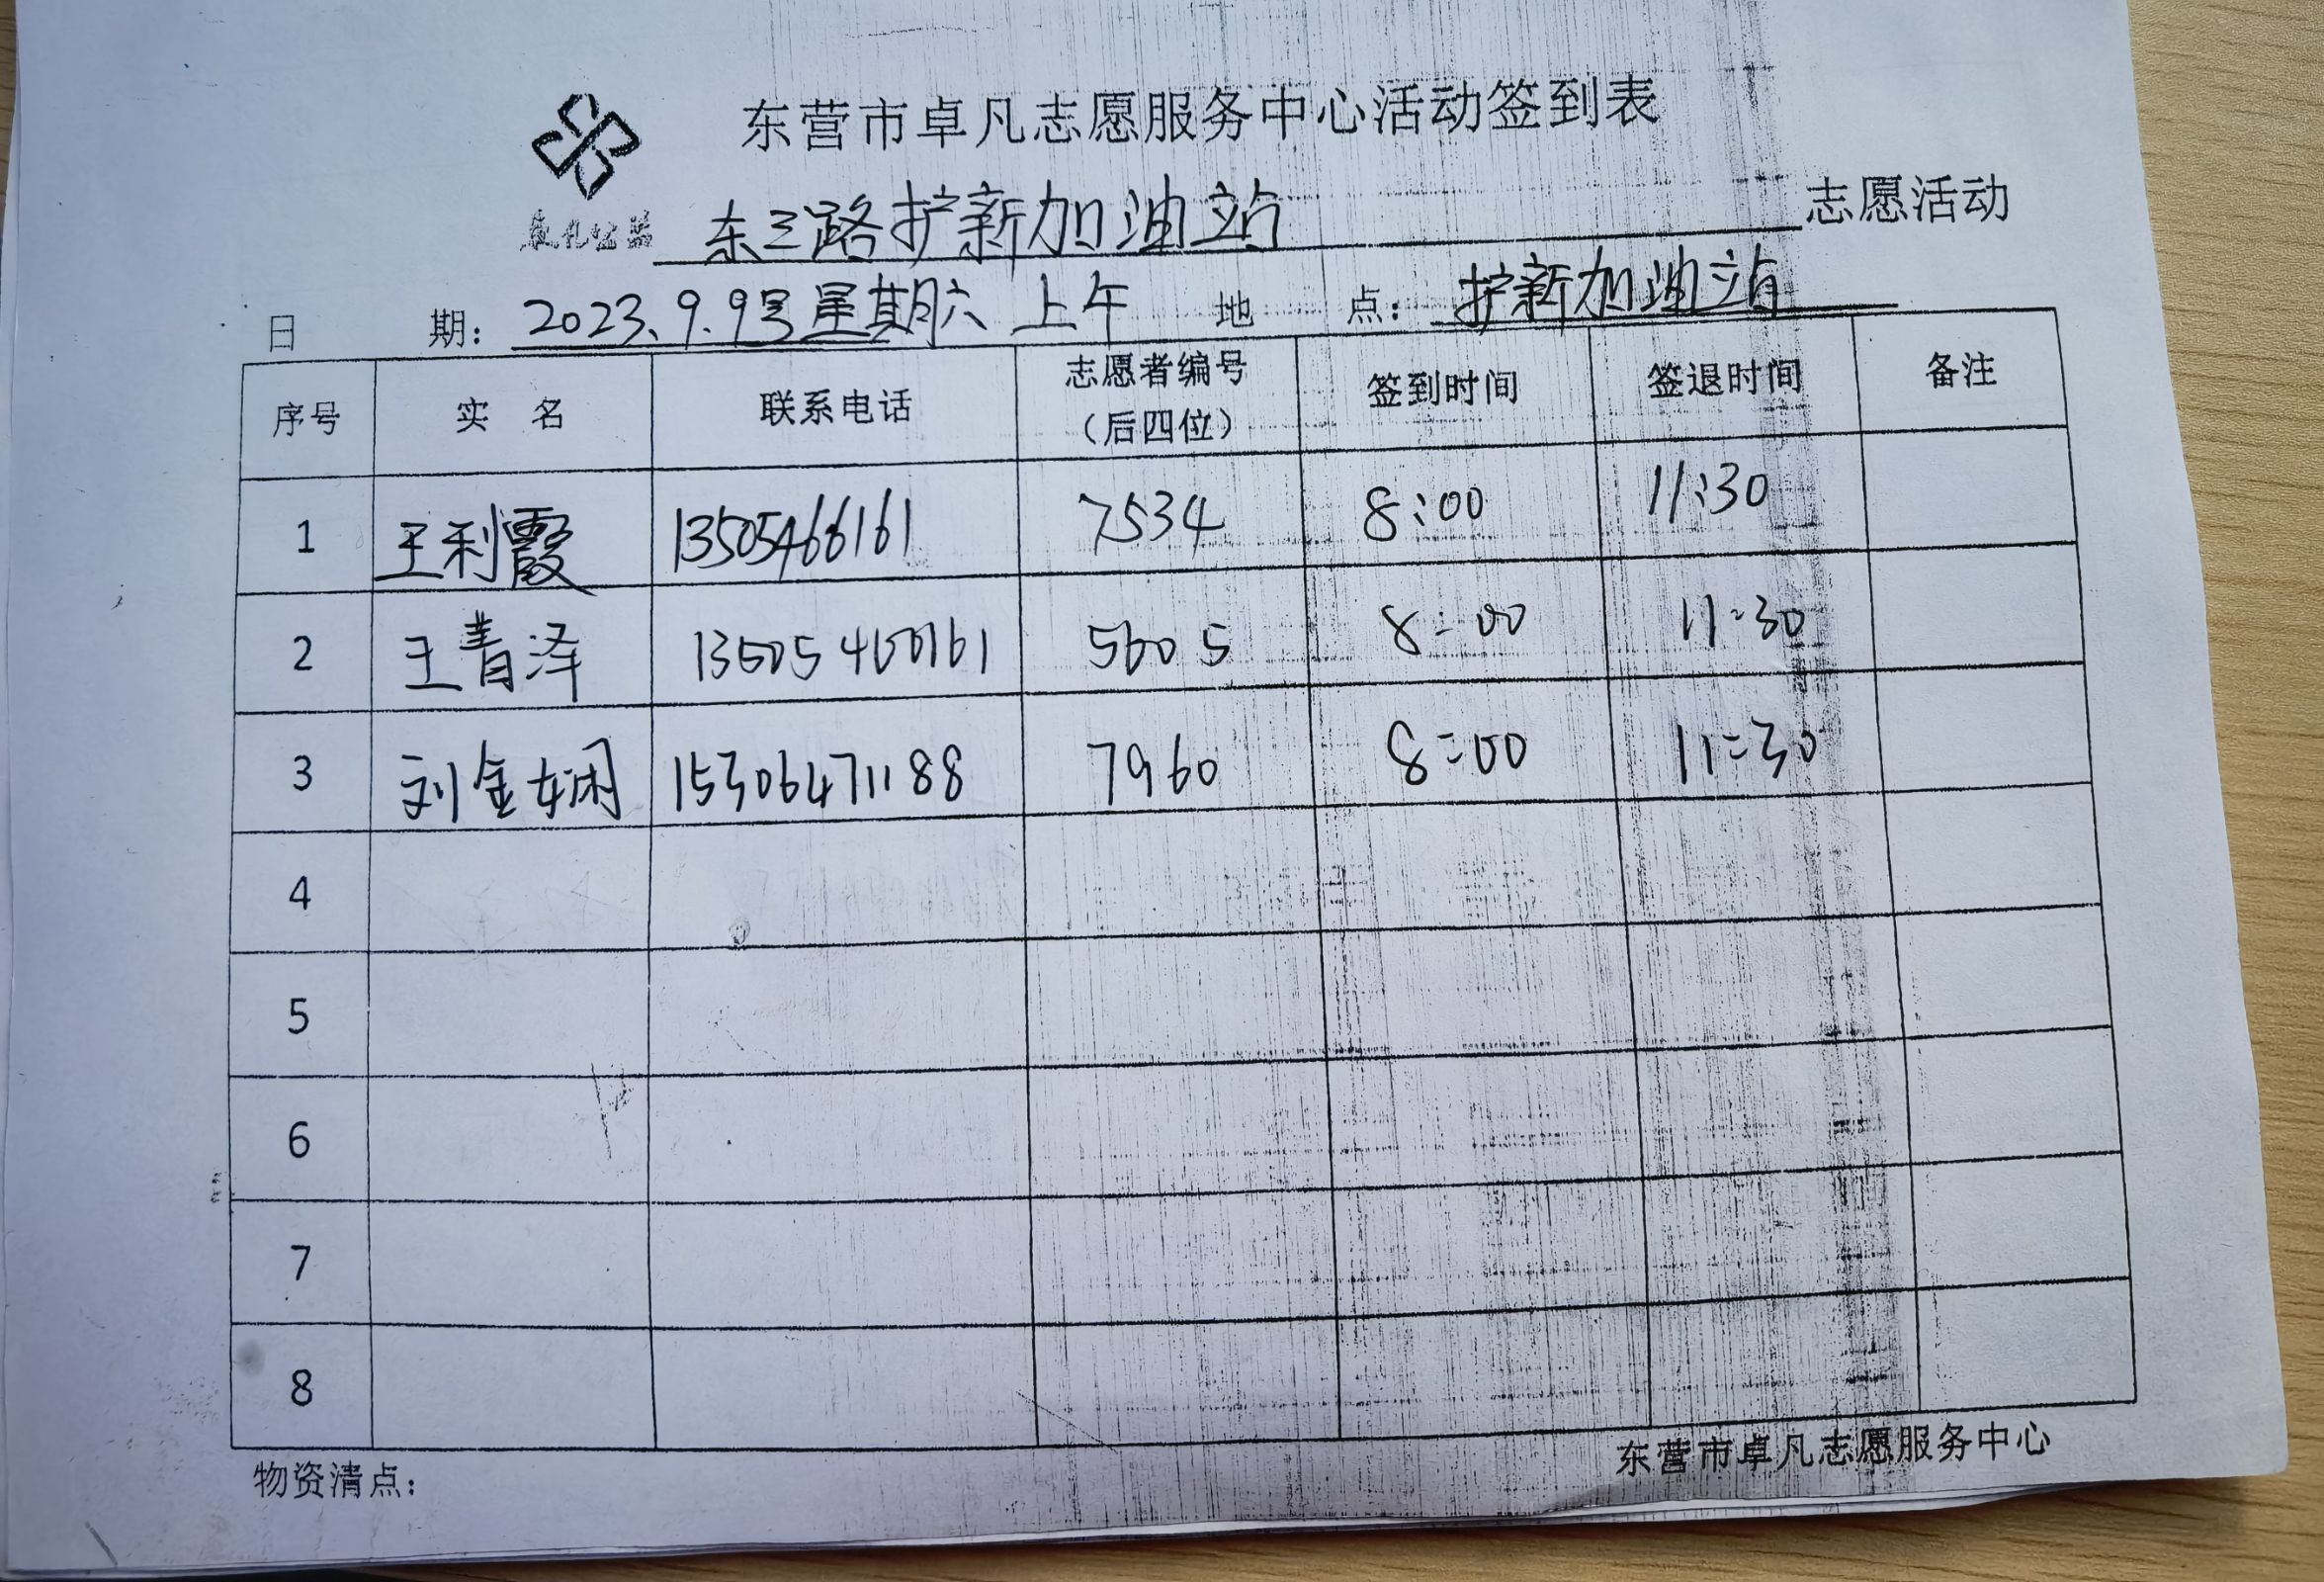 东营市卓凡志愿服务中心活动签到表
东三路护新加油站 志愿活动
日 期: 2023.9.9号星期六 上午 地 点: 护新加油站
序号 实 名 联系电话 志愿者编号（后四位） 签到时间 签退时间 备注
1 王利霞 13505466161 7534 8:00 11:30
2 王青泽 5605 8:00 11:30
3 刘金娴 15306471188 7960 8:00 11:30
4
5
6
7
8
物资清点: 东营市卓凡志愿服务中心